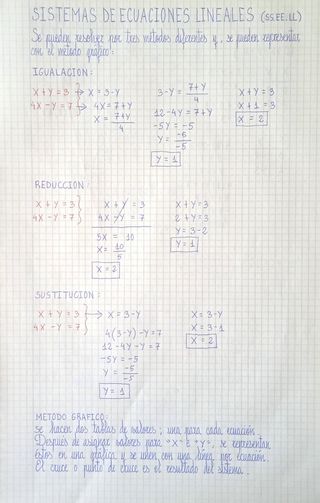 SISTEMAS DE ECUACIONES LINEALES (SS.EE.LL)
Se pueden resolver por tres métodos diferentes y, se pueden representar
con el método gráfico:
IGUALACION:
X + Y = 3 → X = 3-Y
4X - Y = 7 → 4X = 7+Y
X = 7+Y/4
3-Y = 7+Y/4
12-4Y = 7+Y
-5Y = -5
Y = -5/-5
Y = 1
X + Y = 3
X + 1 = 3
X = 2
REDUCCION:
X + Y = 3
4X - Y = 7
X + Y = 3
4X - Y = 7
5X = 10
X = 10/5
X = 2
X + Y = 3
2 + Y = 3
Y = 3 - 2
Y = 1
SUSTITUCION:
X + Y = 3 → X = 3-Y
4X - Y = 7
4(3-Y) - Y = 7
12 - 4Y - Y = 7
-5Y = -5
Y = -5/-5
Y = 1
X = 3-Y
X = 3-1
X = 2
METODO GRAFICO:
Se hacen dos tablas de valores; una para cada ecuación.
Después de asignar valores para "X" e "Y", se representan
éstos en una gráfica y se unen con una línea por ecuación.
El cruce o punto de cruce es el resultado del sistema.